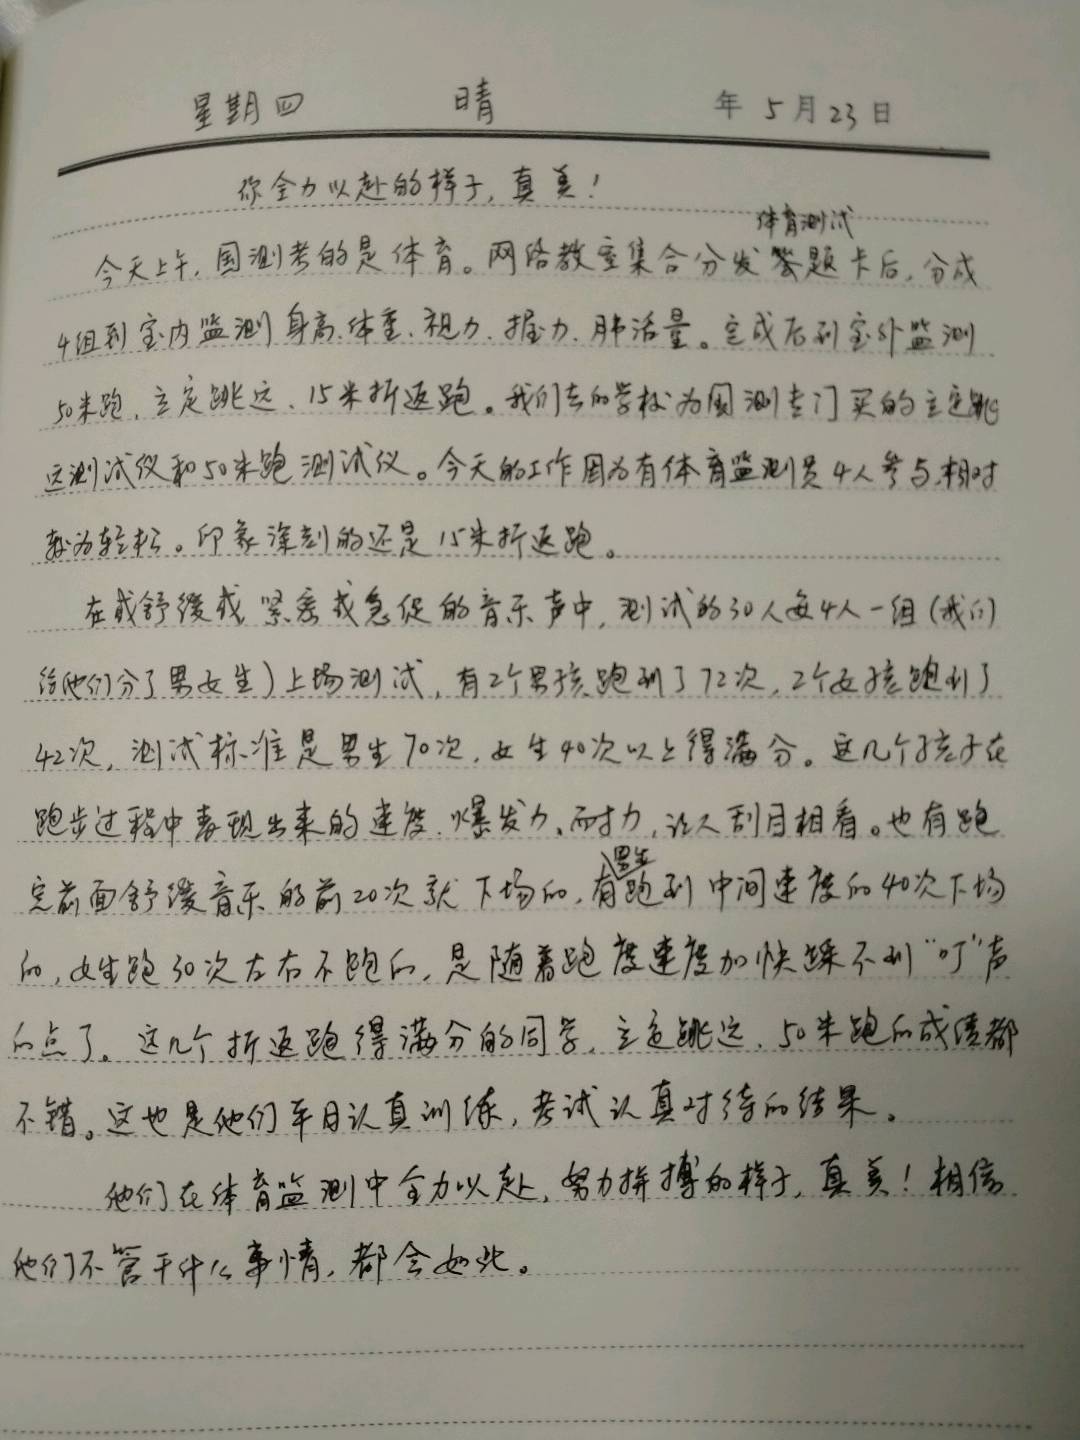 星期四 晴 年 5 月 23 日
你全力以赴的样子，真美！
体育测试
今天上午，国测考的是体育。网络教室集合分发答题卡后，分成
4组到室内监测身高、体重、视力、握力、肺活量。完成后到室外监测
50米跑、立定跳远、15米折返跑。我们去的学校为国测专门买的立定跳
远测试仪和50米跑测试仪。今天的工作因为有体育监测员4人参与，相对
较为轻松。印象深刻的还是15米折返跑。
在或舒缓或紧密或急促的音乐声中，测试的30人每4人一组（我们
给他们分了男女生）上场测试，有2个男孩跑到了72次，2个女孩跑到了
42次，测试标准是男生70次，女生40次以上得满分。这几个孩子在
跑步过程中表现出来的速度、爆发力、耐力，让人刮目相看。也有跑
男生
完前面舒缓音乐的前20次就下场的，有跑到中间速度的40次下场
的，女生跑30次左右不跑的，是随着跑度速度加快踩不到“叮”声
的点了。这几个折返跑得满分的同学，立定跳远、50米跑的成绩都
不错。这也是他们平日认真训练，考试认真对待的结果。
他们在体育监测中全力以赴，努力拼搏的样子，真美！相信
他们不管干什么事情，都会如此。